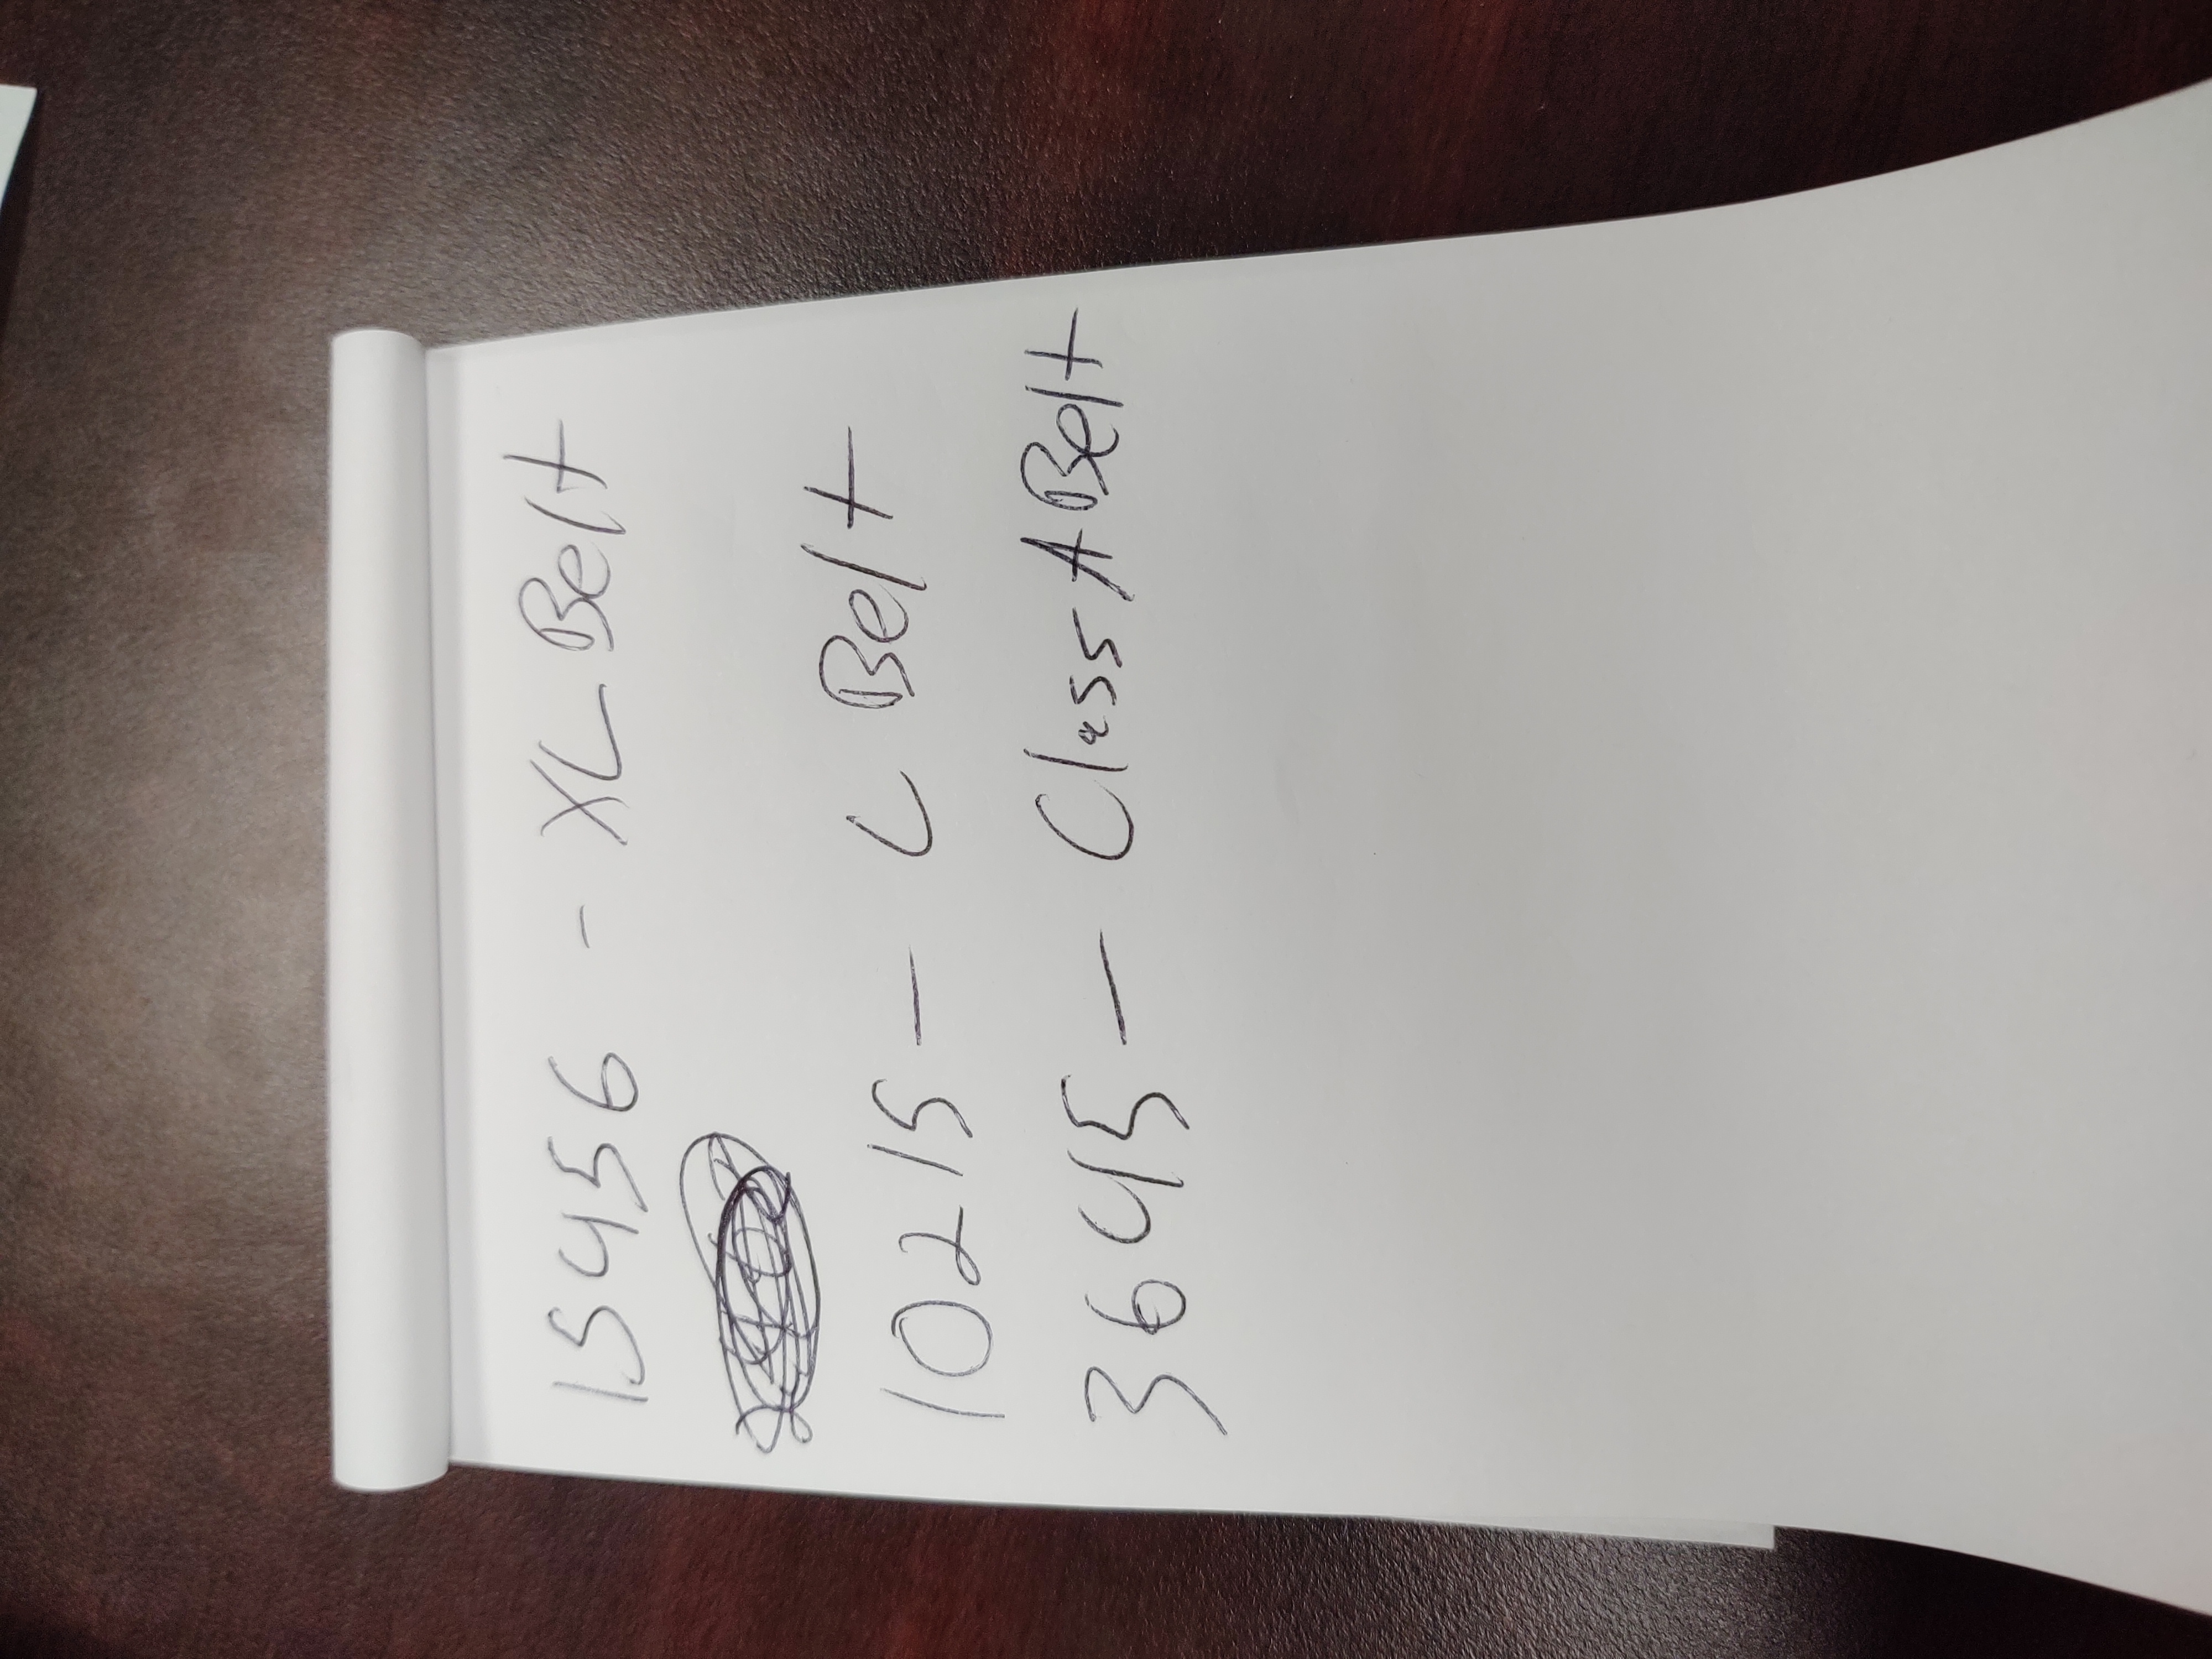 15456 - XL Belt
10215 - L Belt
3645 - Class A Belt